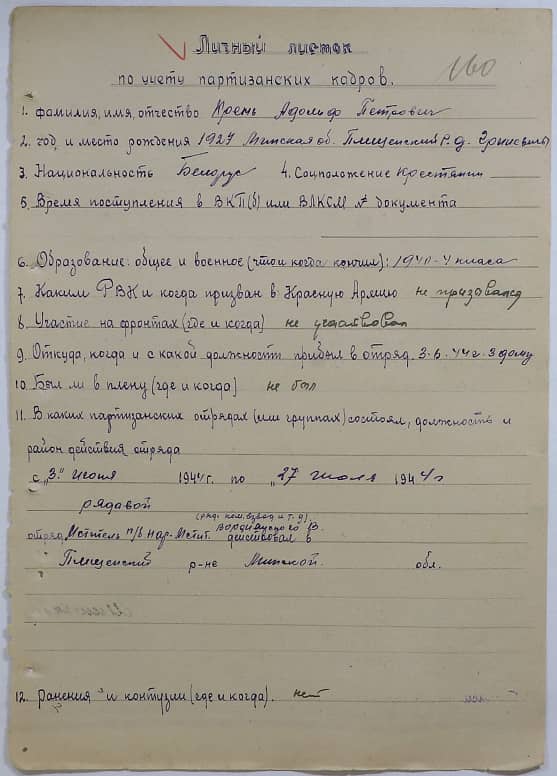 Личный листок
160
по учету партизанских кадров.
1. фамилия, имя, отчество Кремь Адольф Петрович
2. год и место рождения 1927 Минская об. Плещенский Р. д.
3. Национальность Белорус 4. Соцположение Крестянин
5. Время поступления в ВКП(б) или ВЛКСМ № документа
6. Образование: общее и военное (что и когда кончил): 1941 - 4 класа
7. Каким РВК и когда призван в Красную Армию не призавался
8. Участие на фронтах (где и когда) не участвовал
9. Откуда, когда и с какой должности прибыл в отряд. 3-6-44г. з дому
10. Был ли в плену (где и когда) не был
11. В каких партизанских отрядах (или группах) состоял, должность и
район действия отряда
с "3." июня 1944г. по "27 июля 1944г
рядавой
(ряд. ком. взвод и т. д)
отряд Мститель п/б нар. Мстит. действовал в
Плещенский р-не Минской обл.
12. Ранения и контузии (где и когда). нет